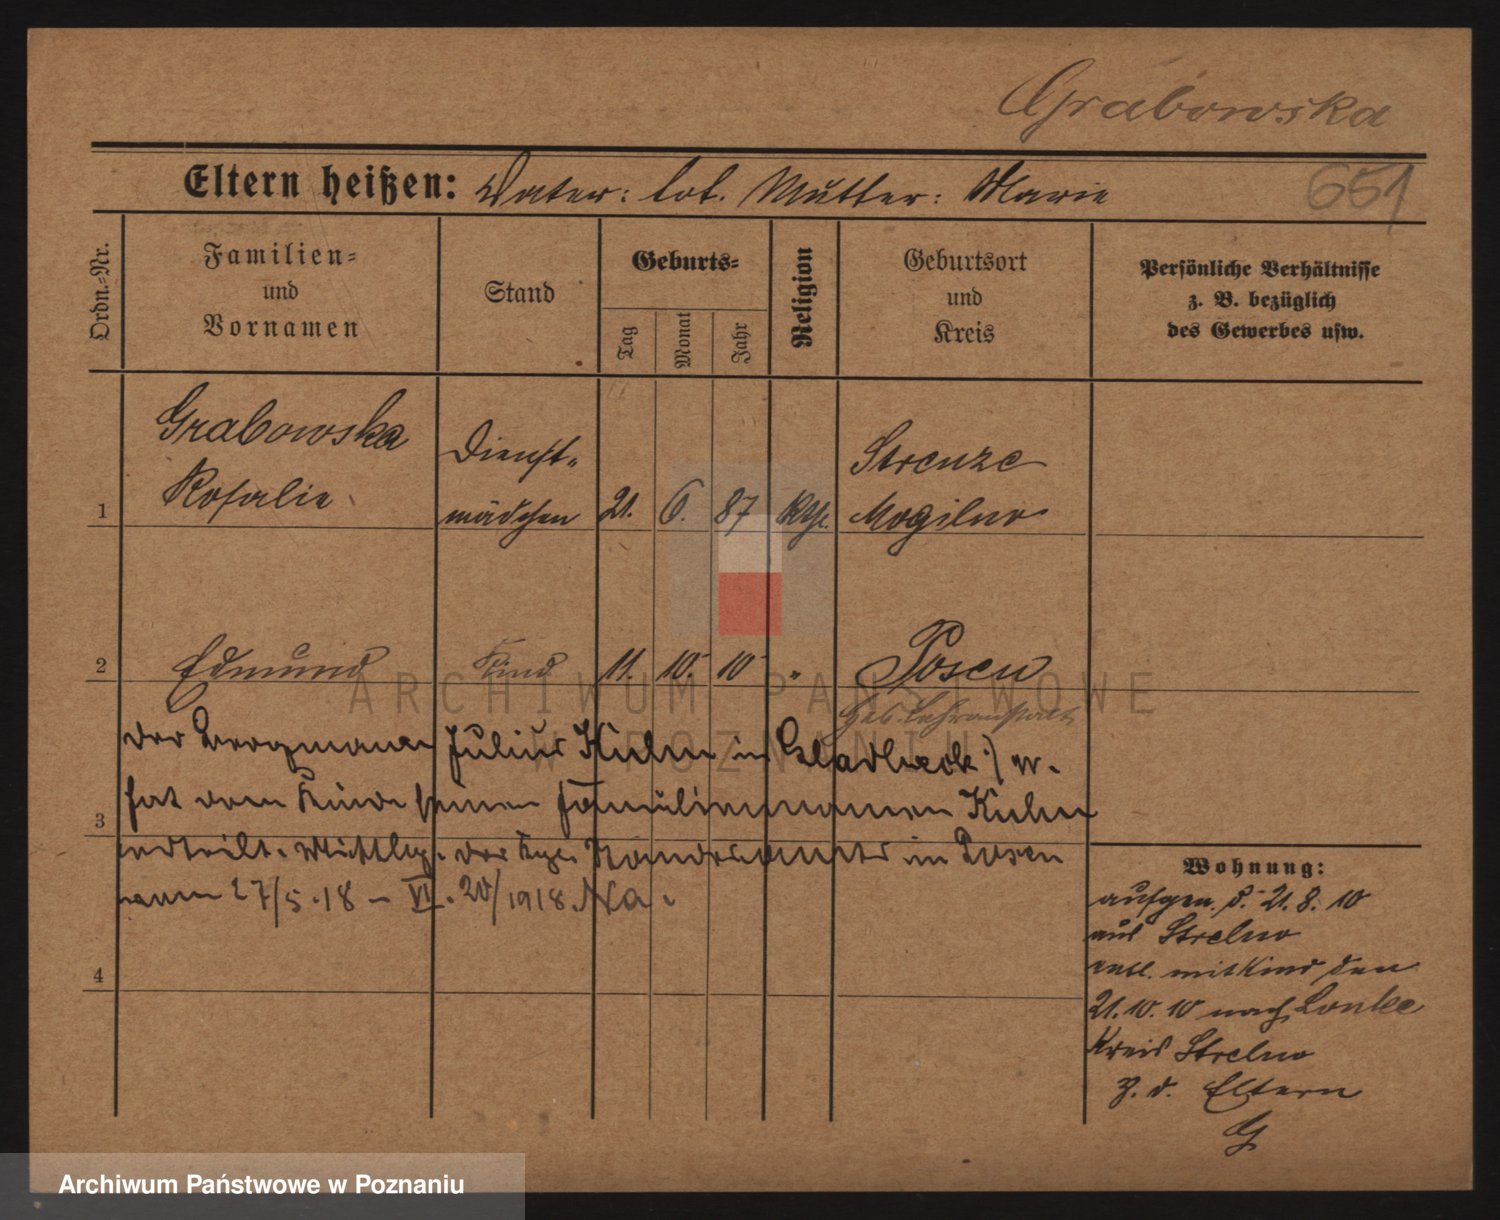 Grabowska
Eltern heißen: Vater: tot. Mutter: Marie
651
Ordn.-Nr.
Familien-
und
Vornamen
Stand
Geburts-
Tag
Monat
Jahr
Religion
Geburtsort
und
Kreis
Persönliche Verhältnisse
z. B. bezüglich
des Gewerbes usw.
Grabowska
Rosalie
Dienst-
mädchen
1
21. 6. 87 kth.
Strenze
Mogilno
2
Edmund
Kind
11. 10. 10 "
Posen
Heb. Lehranstalt
der Bergmann Julius Kuhn in Gladbeck i/W.
hat dem Kinde seinen Familiennamen Kuhn
3
erteilt. Mittlg. der Kgl. Standesamts in Posen
vom 27/5.18 – VI. 20/1918. Na.
4
Wohnung:
aufgen. d. 21. 8. 10
aus Strelno
entl. mit Kind den
21. 10. 10 nach
Kreis Strelno
z. d. Eltern
G
ARCHIWUM PAŃSTWOWE
W POZNANIU
Archiwum Państwowe w Poznaniu